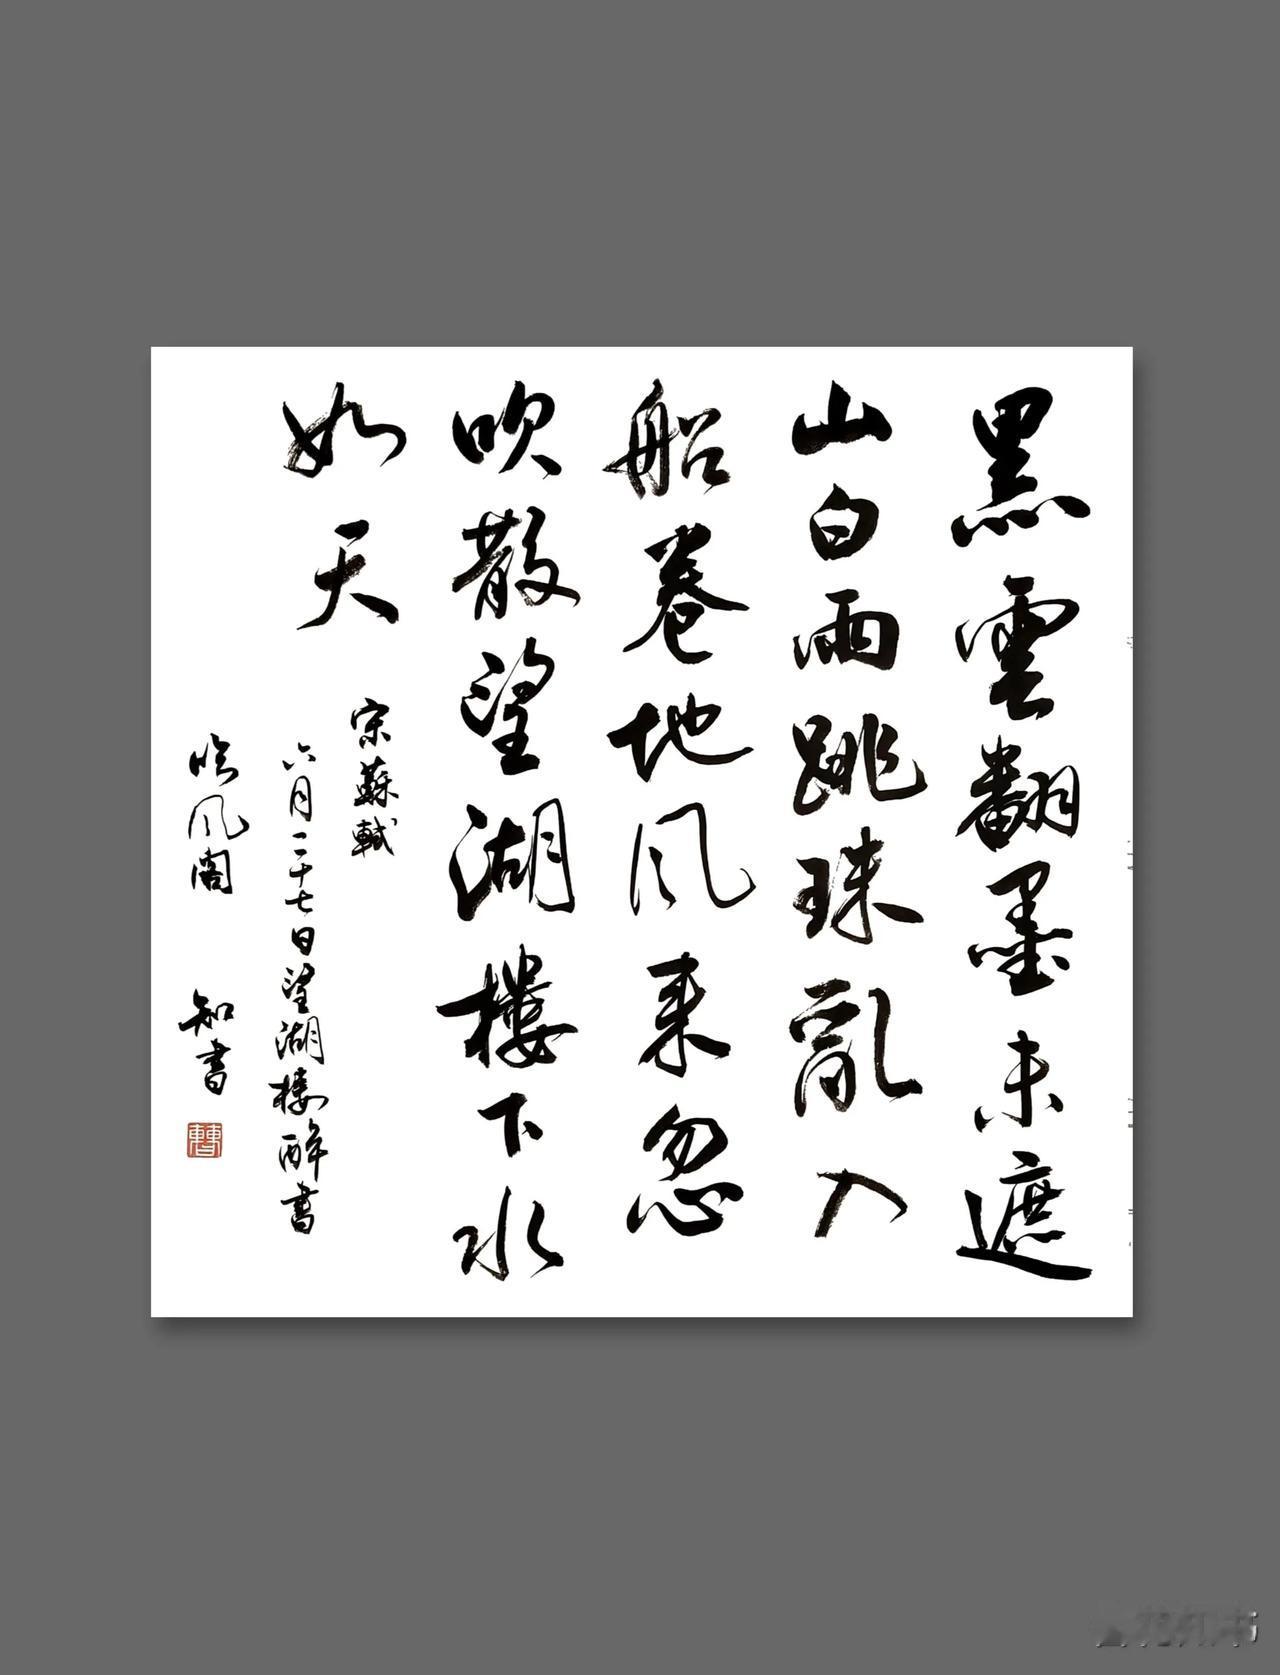 黑雲翻墨未遮
山白雨跳珠亂入
船卷地风来忽
吹散望湖樓下水
如天
宋蘇軾
六月二十七日望湖楼醉書
吟风阁 知書